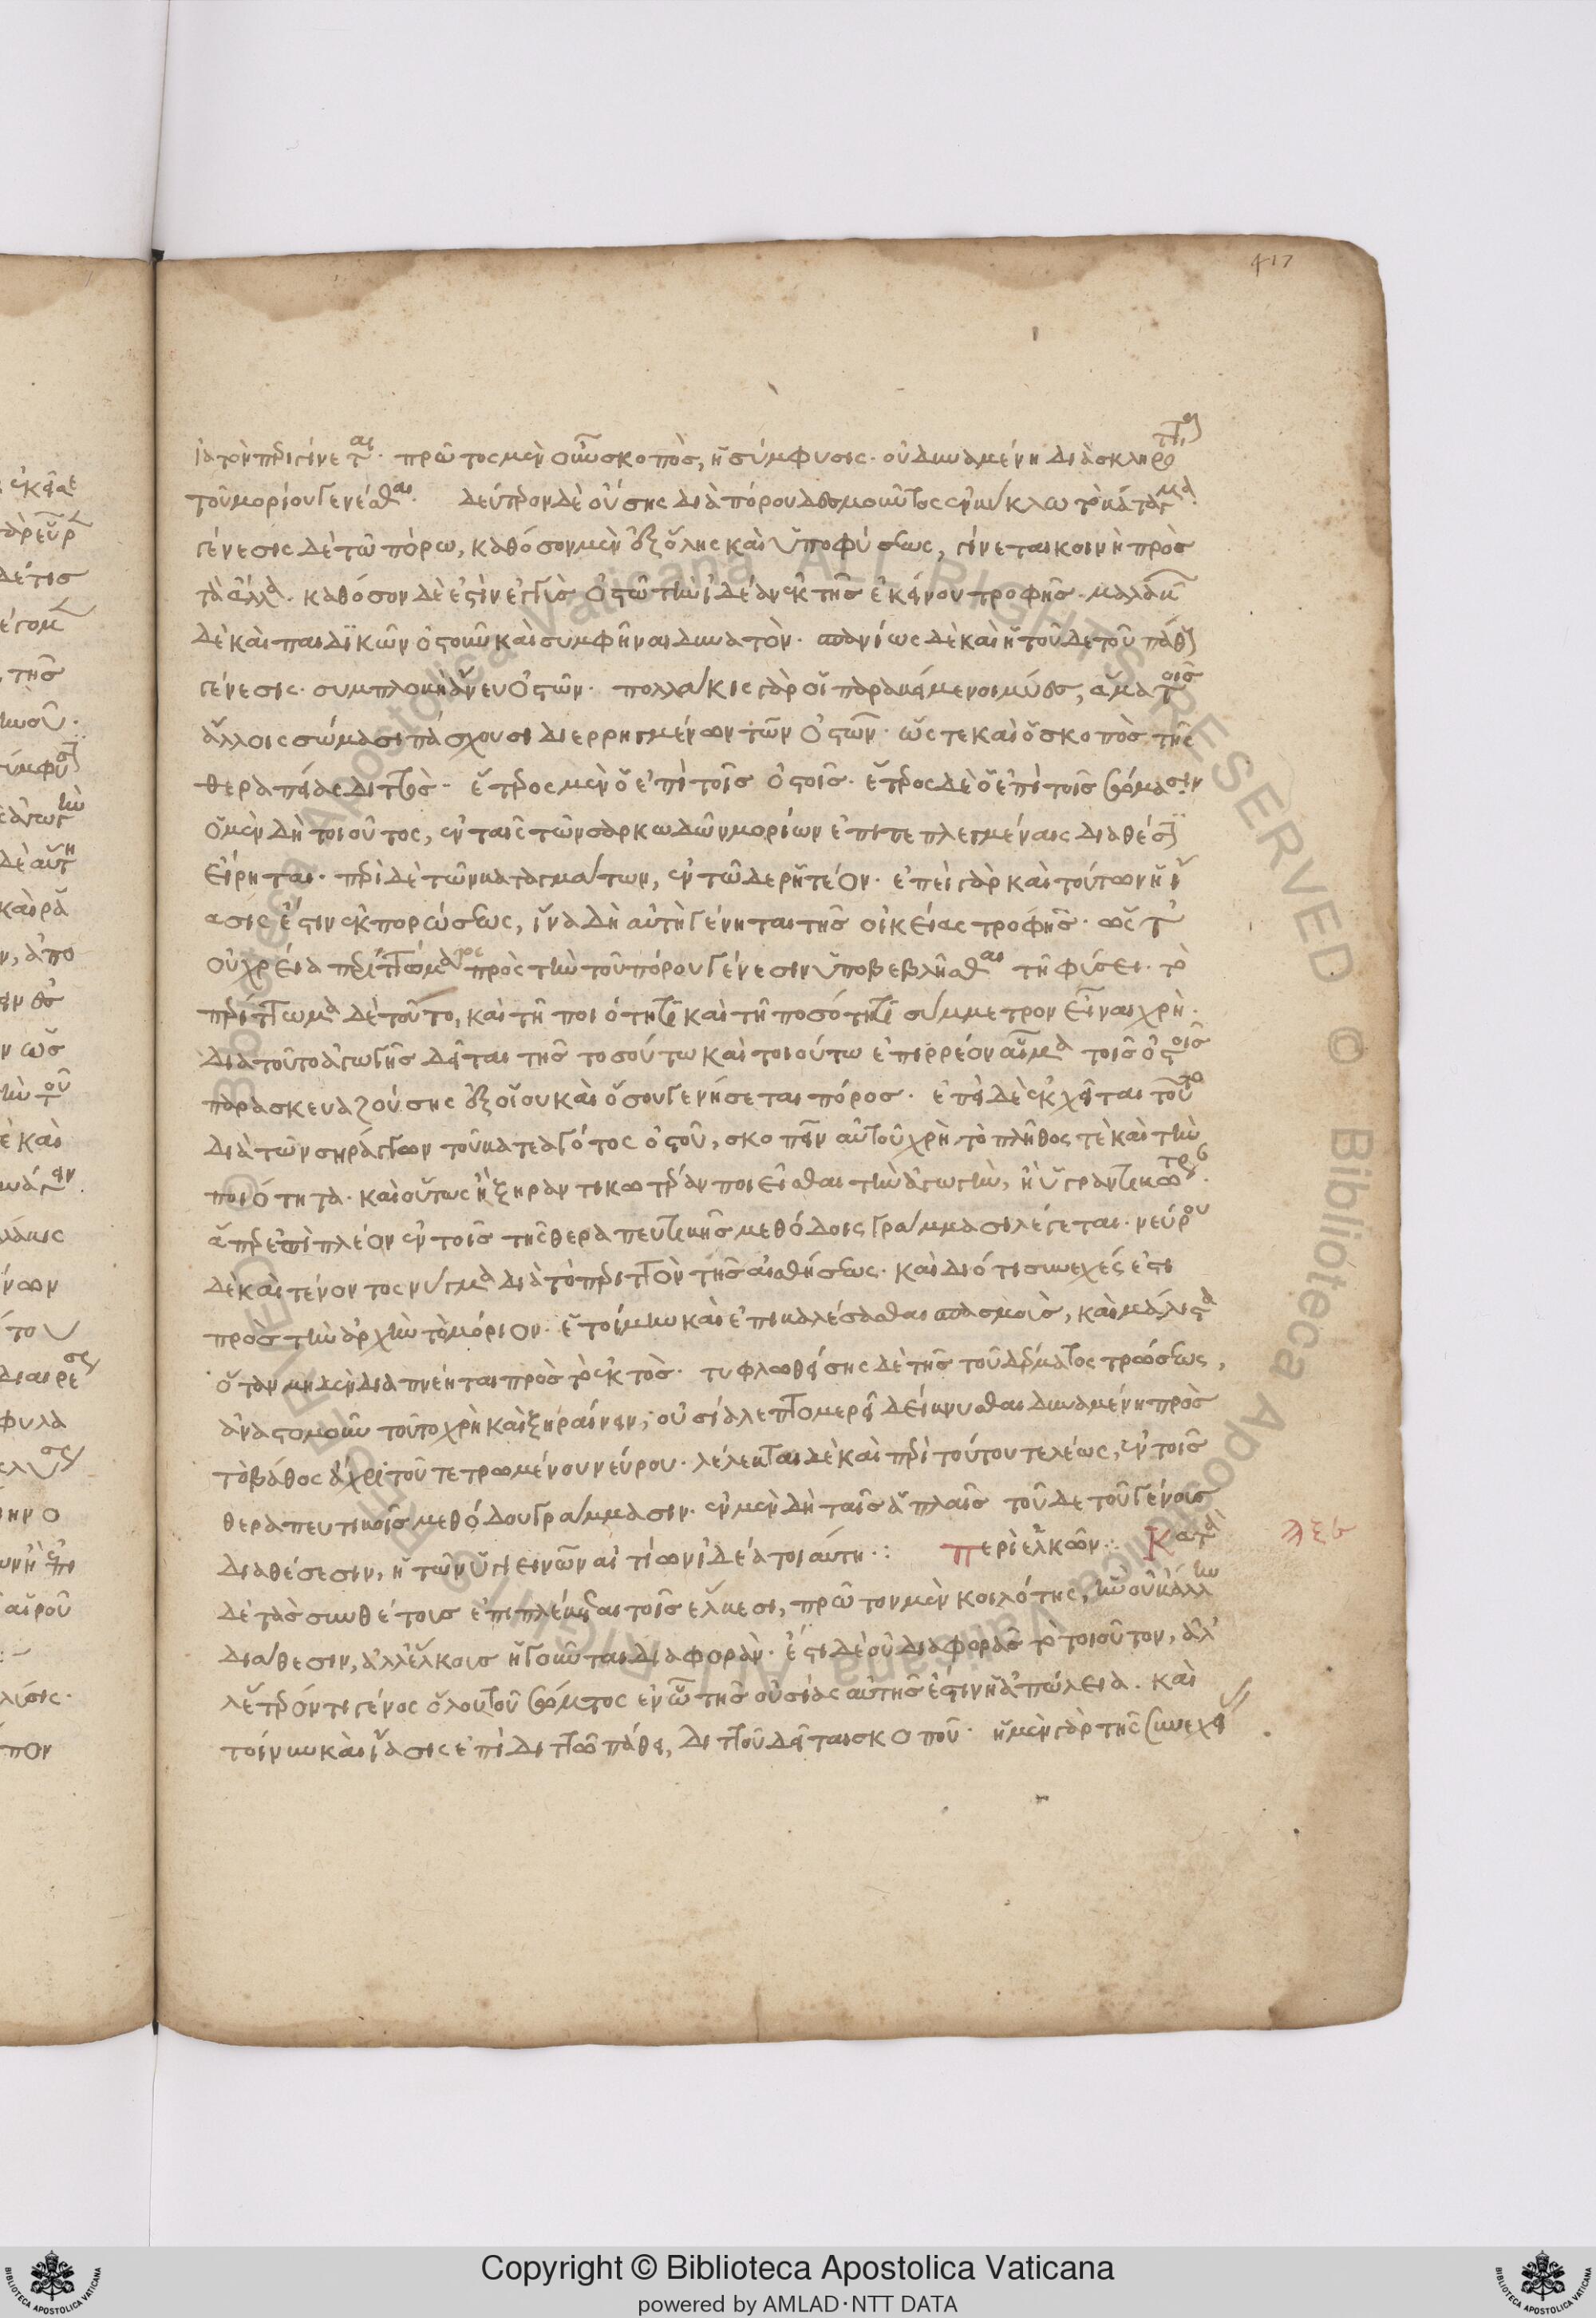 417
ἰατὸν περιγίνεται. πρῶτος μὲν οὖν σκοπὸς, ἡ σύμφυσις. οὐ δυναμένη διὰ σκληρότητα
τοῦ μορίου γενέσθαι. δεύτερον δὲ οὔσης διὰ πόρου δεσμοῦντος ἐν κύκλω τὸ κάταγμα.
γένεσις δὲ τῶ πόρω, καθόσον μὲν ἐξ ὕλης καὶ ὑπὸ φύσεως, γίνεται κοινὴ πρὸς
τὰ ἄλλα. καθόσον δὲ ἐστὶν ἐγγὺς ὀστῶ τὴν ἰδέαν ἐκ τῆς ἐκείνου τροφῆς. μαλακὸν
δὲ καὶ παιδικὸν ὀστοῦν καὶ συμφῆναι δυνατόν. σπανίως δὲ καὶ ἡ τοῦδε τοῦ πάθους
γένεσις. συμπλοκὴ ἄνευ ὀστῶν. πολλάκις γὰρ οἱ παρακείμενοι μύες, ἅμα τοῖς
ἄλλοις σώμασι πάσχουσι διερρηγμένων τῶν ὀστῶν. ὥστε καὶ ὁ σκοπὸς τῆς
θεραπείας διττὸς. ἕτερος μὲν ὁ ἐπὶ τοῖς ὀστοῖς. ἕτερος δὲ ὁ ἐπὶ τοῖς σώμασιν
ὁ μὲν δὴ τοιοῦτος, ἐν ταῖς τῶν σαρκωδῶν μορίων ἐπιπεπλεγμέναις διαθέσεσιν
εἴρηται. περὶ δὲ τῶν καταγμάτων, ἐν τῶδε ῥητέον. ἐπεὶ γὰρ καὶ τούτων ἡ ἴ
ασις ἐστὶν ἐκ πορώσεως, ἵνα δὴ αὐτὴ γένηται τῆς οἰκείας τροφῆς. ὥστ'
οὐ χρεία περιττώματος πρὸς τὴν τοῦ πόρου γένεσιν ὑποβεβλῆσθαι τῆ φύσει. τὸ
περίττωμα δὲ τοῦτο, καὶ τῆ ποιότητι καὶ τῆ ποσότητι σύμμετρον εἶναι χρή.
διὰ τοῦτο ἀγωγῆς δεῖται τῆς τοσούτω καὶ τοιούτω ἐπιρρέον αἷμα τοῖς ὀστοῖς
παρασκευαζούσης ἐξ οἵου καὶ ὅσου γενήσεται πόρος. ἐπεὶ δὲ ἐκχεῖται τοῦτο
διὰ τῶν σηράγγων τοῦ κατεαγότος ὀστοῦ, σκοπεῖν αὐτοῦ χρὴ τὸ πλῆθος τὲ καὶ τὴν
ποιότητα. καὶ οὕτως ἢ ξηραντικωτέραν ποιεῖσθαι τὴν ἀγωγὴν, ἢ ὑγραντικωτέραν.
ἅπερ ἐπὶ πλέον ἐν τοῖς τῆς θεραπευτικῆς μεθόδοις γράμμασι λέγεται. νεύρου
δὲ καὶ τένοντος νύγμα διὰ τὸ περιττὸν τῆς αἰσθήσεως. καὶ διότι συνεχές ἐστι
πρὸς τὴν ἀρχὴν τὸ μόριον. ἕτοιμον καὶ ἐπικαλέσασθαι σπασμοὺς, καὶ μάλιστα
ὅταν μηδὲν διαπνέηται πρὸς τὸ ἐκτὸς. τυφλωθείσης δὲ τῆς τοῦ δέρματος τρώσεως,
ἀναστομοῦν τοῦτο χρὴ καὶ ξηραίνειν, οὐσία λεπτομερεῖ δείκνυσθαι δυναμένη πρὸς
τὸ βάθος ἄχρι τοῦ τετρωμένου νεύρου. λέλεκται δὲ καὶ περὶ τούτου τελέως, ἐν τοῖς
θεραπευτικοῖς μεθόδου γράμμασιν. ἐν μὲν δὴ ταῖς ἁπλαῖς τοῦδε τοῦ γένους
διαθέσεσιν, ἡ τῶν ὑγιεινῶν αἰτίων ἰδέα τοιαύτη.: Περὶ ἑλκῶν: Κατὰ
δὲ τὰς συνθέτους ἐπιπλέκεται τοῖς ἕλκεσι, πρῶτον μὲν κοιλότης, ἣν οὐκ ἄλλην
διάθεσιν, ἀλλ' ἕλκους ἡγοῦνται διαφοράν. ἐστὶ δὲ οὐ διαφορᾶς τὸ τοιοῦτον, ἀλ'
λ' ἕτερόν τι γένος ὅλου τοῦ σώματος ἐν ὧ τῆς οὐσίας αὐτῆς ἐστὶν ἡ ἀπώλεια. καὶ
τοίνυν καὶ ἴασις ἐπὶ διττῶ πάθει, διττοῦ δεῖται σκοποῦ. ἡ μὲν γὰρ τῆς συνεχεί
Copyright © Biblioteca Apostolica Vaticana
powered by AMLAD·NTT DATA